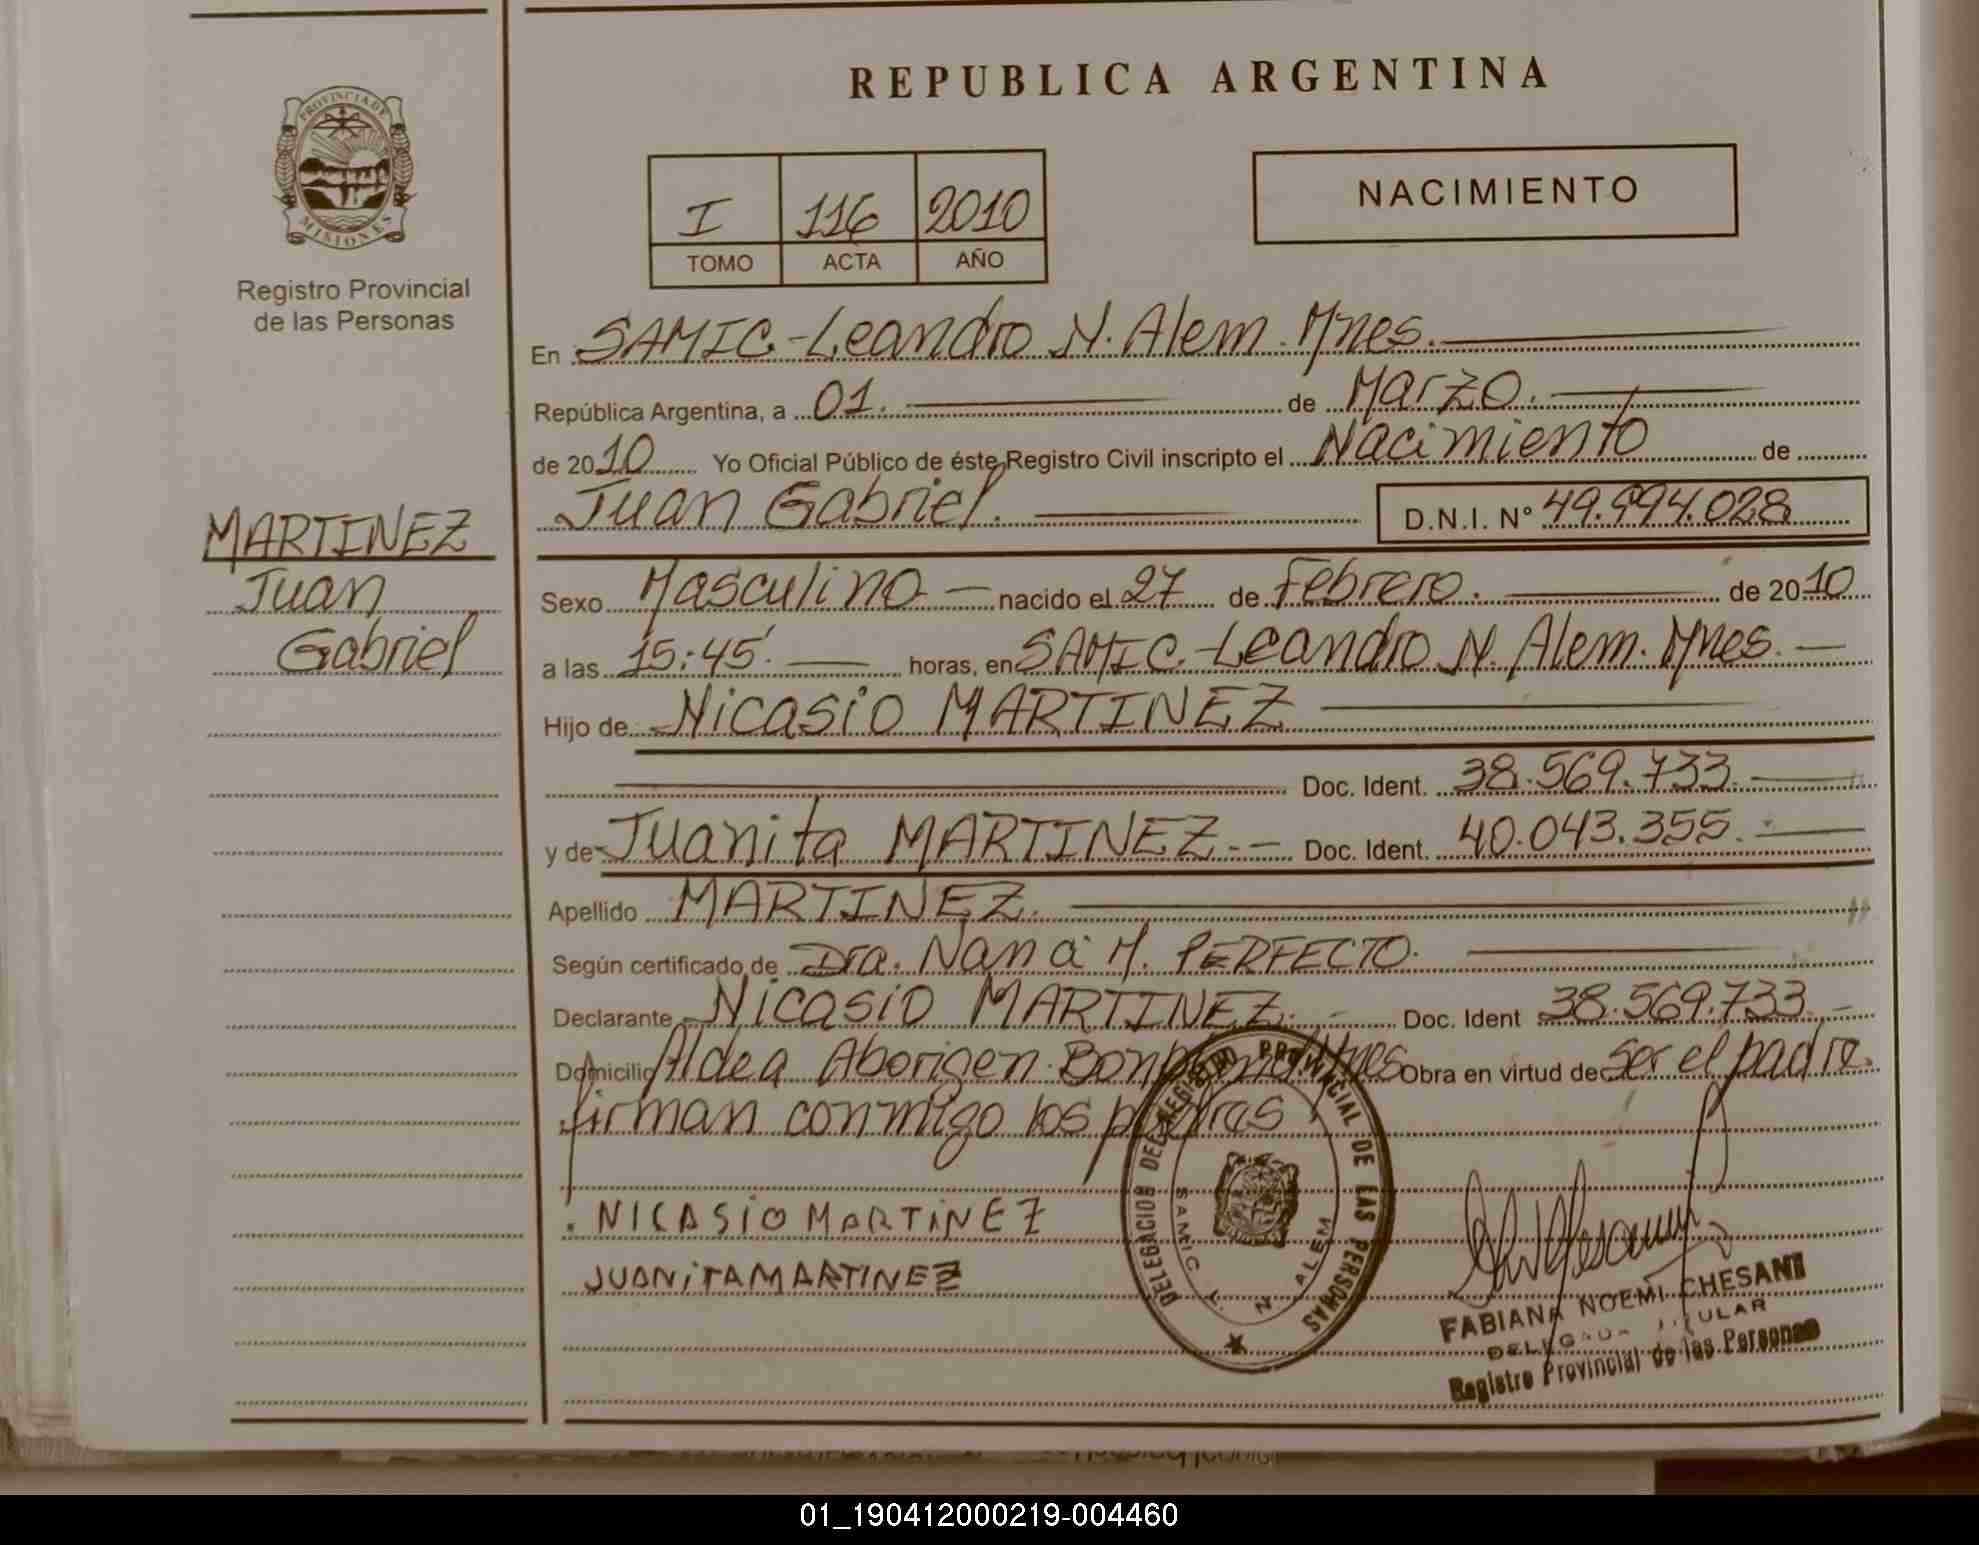 REPUBLICA ARGENTINA
PROVINCIA DE
MISIONES
Registro Provincial
de las Personas
I 116 2010
TOMO ACTA AÑO
NACIMIENTO
En SAMIC - Leandro N. Alem. Mnes.
República Argentina, a 01. de Marzo.
de 2010 Yo Oficial Público de éste Registro Civil inscripto el Nacimiento de
Juan Gabriel. D.N.I. N° 49.994.028
MARTINEZ
Juan
Gabriel
Sexo Masculino nacido el 27 de Febrero. de 2010
a las 15:45'. horas, en SAMIC - Leandro N. Alem. Mnes.
Hijo de Nicasio MARTINEZ
Doc. Ident. 38.569.733.
y de Juanita MARTINEZ.- Doc. Ident. 40.043.355.
Apellido MARTINEZ.
Según certificado de Dra. M. PERFECTO.
Declarante Nicasio MARTINEZ. Doc. Ident 38.569.733.
Domicilio Aldea Aborigen Bonpland Mnes Obra en virtud de ser el padre.
firman conmigo los padres
NICASIO MARTINEZ
JUANITA MARTINEZ
DELEGACION DEL REGISTRO PROVINCIAL DE LAS PERSONAS
SAMIC L. N. ALEM
FABIANA NOEMI CHESANI
DELEGADA TITULAR
Registro Provincial de las Personas
01_190412000219-004460